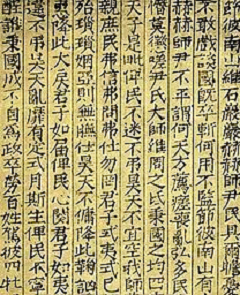 彼南山維石巖巖赫赫師尹民具爾瞻
不敢戲談國既卒斬何用不監節彼南山有
赫赫師尹不平謂何天方薦瘥喪亂弘多民
憯莫懲嗟尹氏大師維周之氐秉國之均四
天子是毗俾民不迷不弔昊天不宜空我師
親庶民弗信弗問弗仕勿罔君子式夷式已
殆瑣瑣姻亞則無膴仕昊天不傭降此鞠訩
降此大戾君子如屆俾民心闋君子如夷
違不弔昊天亂靡有定式月斯生俾民不寧
誰秉國成不自為政卒勞百姓駕彼四牡